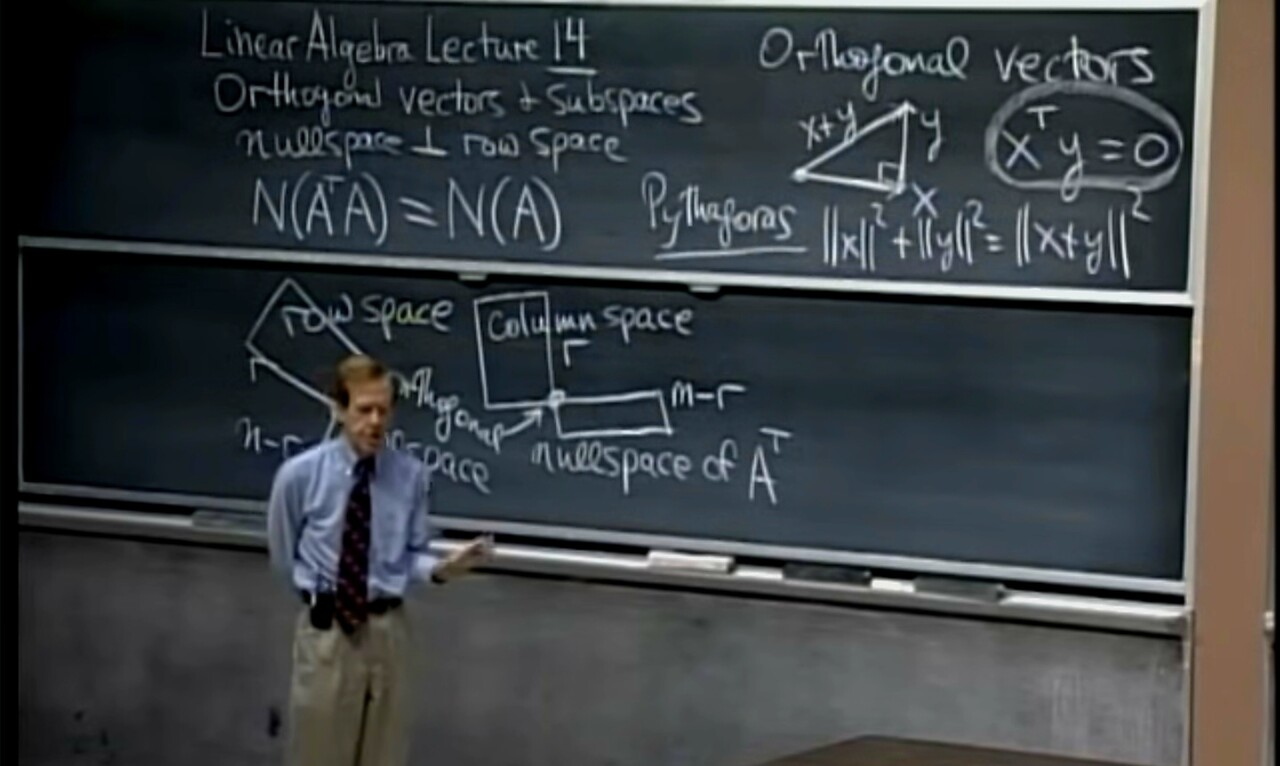 Linear Algebra Lecture 14
Orthogonal vectors + Subspaces
nullspace ⊥ row space
N(AᵀA) = N(A)
Orthogonal vectors
x+y
y
x
xᵀy = 0
Pythagoras ||x||² + ||y||² = ||x+y||²
row space
r
n-r
space
column space
r
m-r
nullspace of Aᵀ